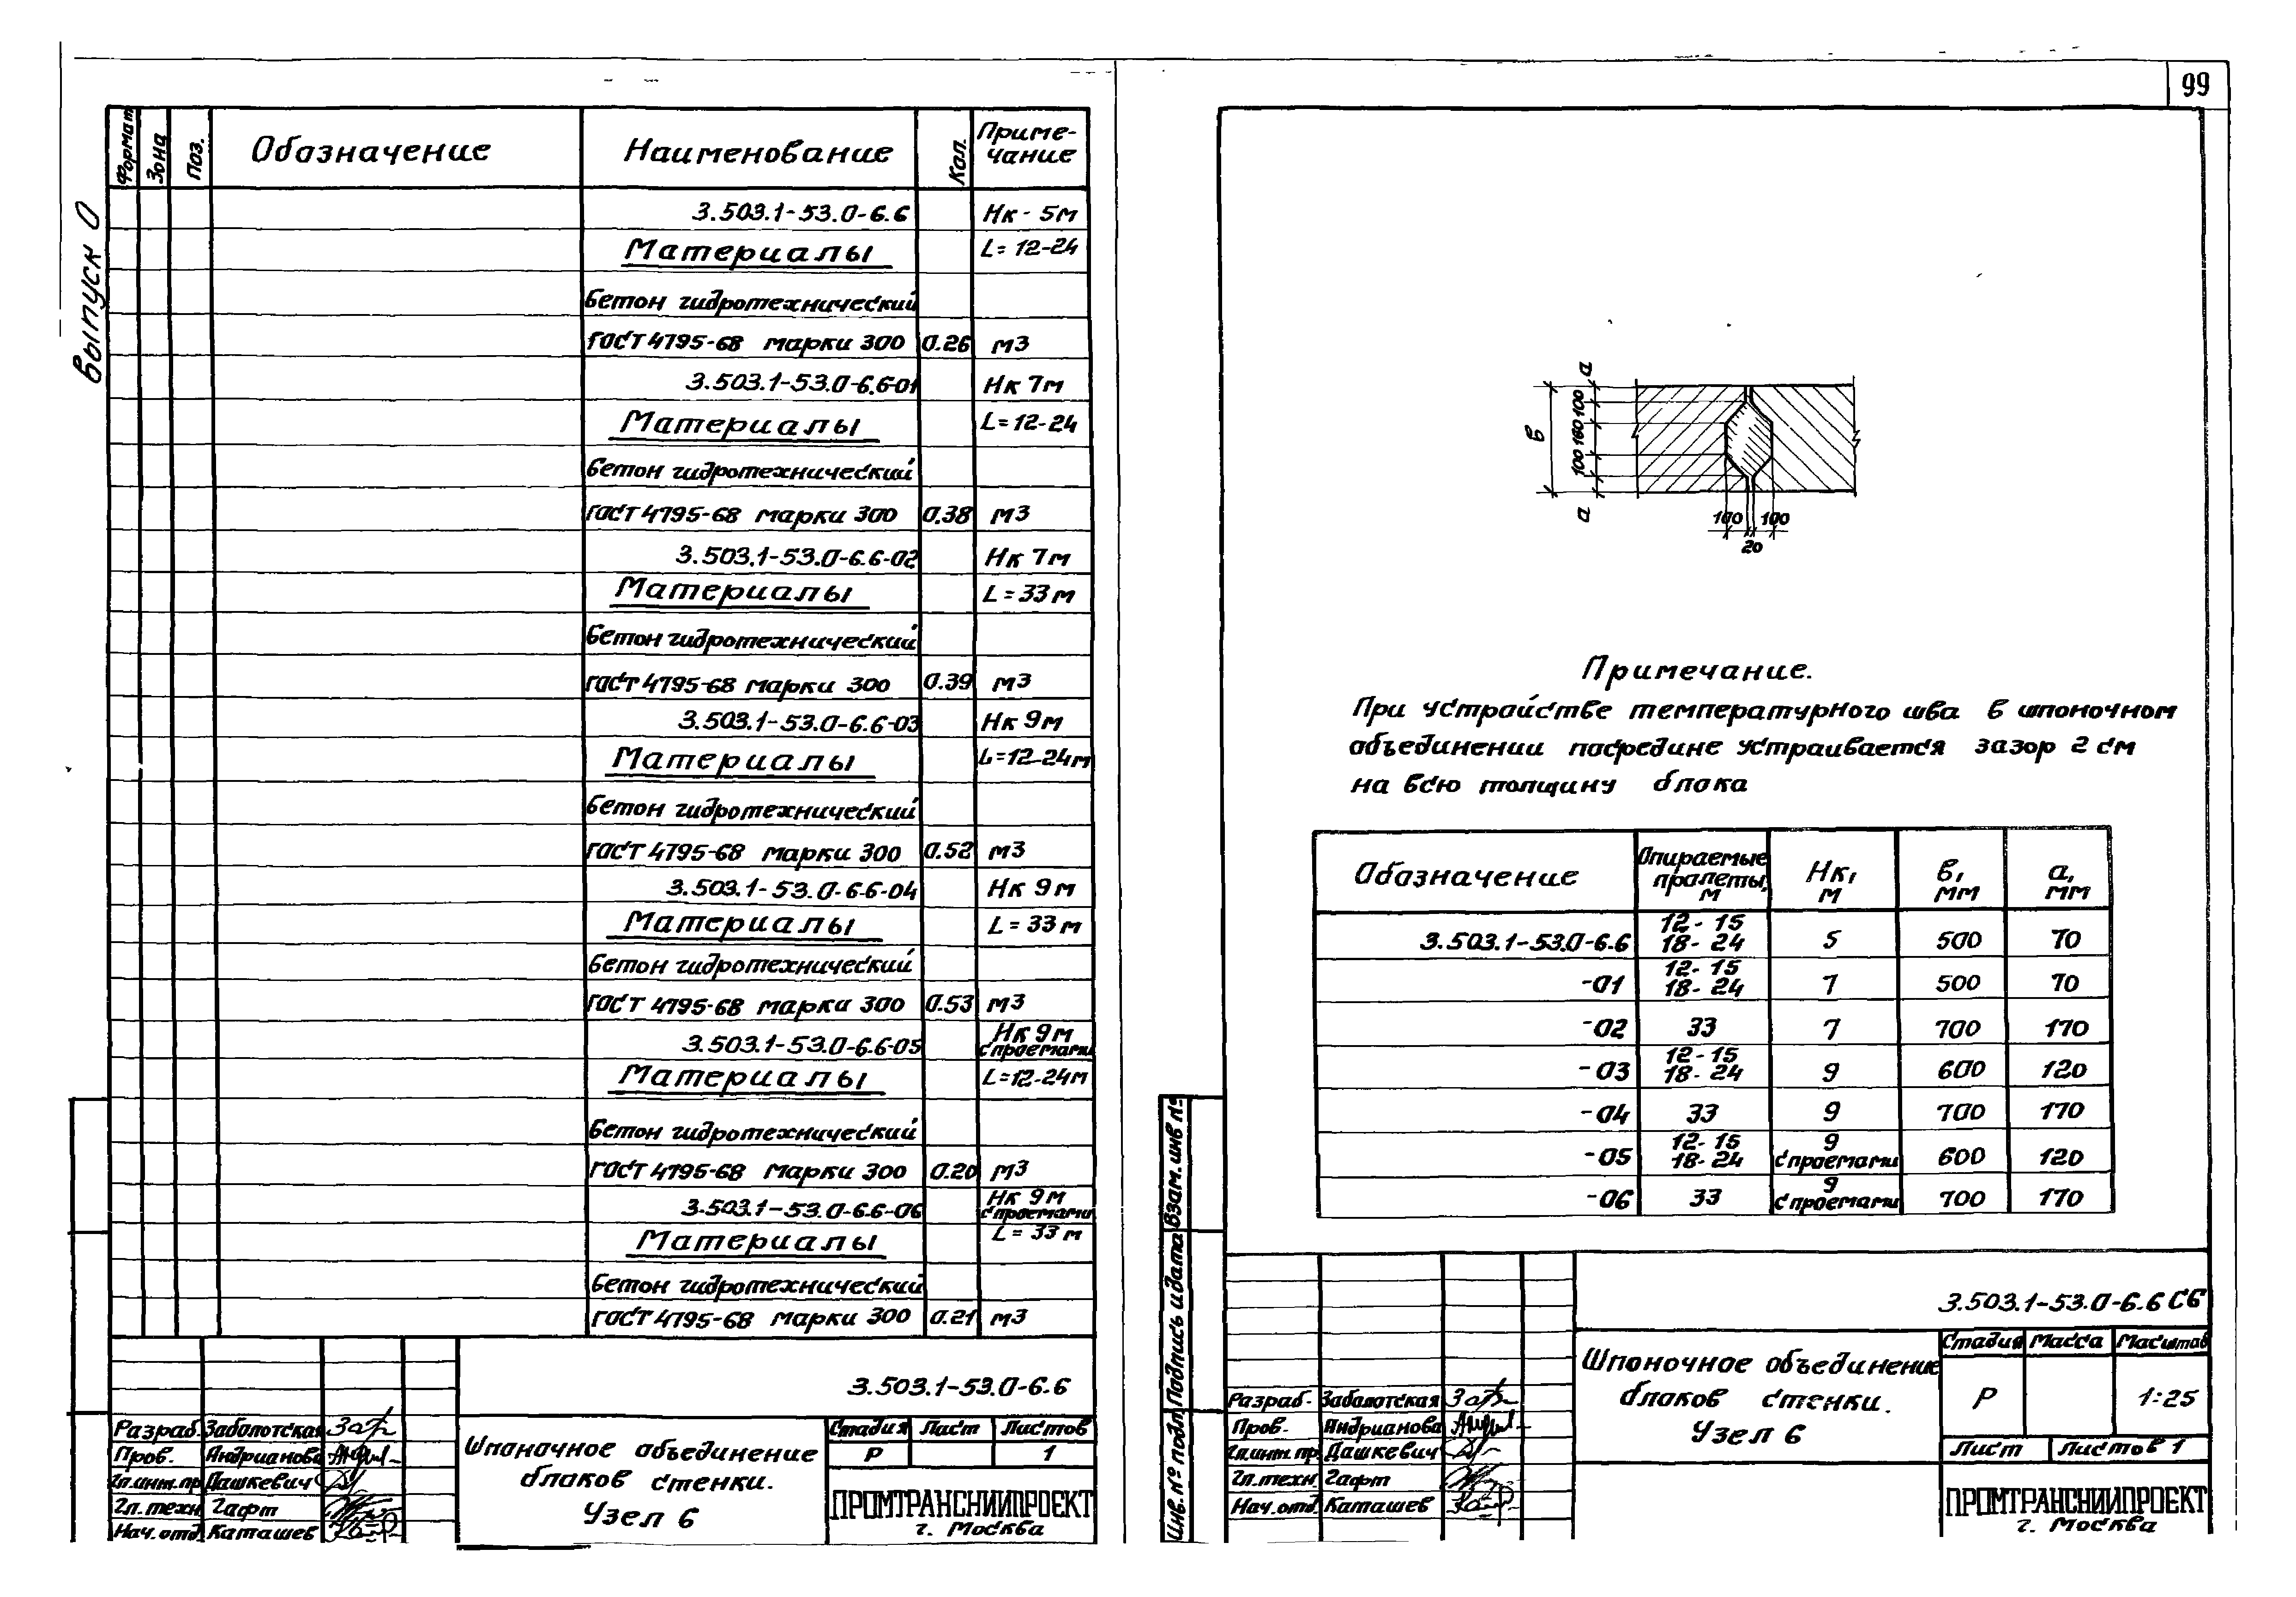 99
Выпуск 0
Формат Зона Поз. Обозначение Наименование Кол. Приме-
чание
3.503.1-53.0-6.6 Нк - 5м
Материалы L= 12-24
Бетон гидротехнический
ГОСТ 4795-68 марки 300 0.26 м3
3.503.1-53.0-6.6-01 Нк 7м
Материалы L=12-24
Бетон гидротехнический
ГОСТ 4795-68 марки 300 0.38 м3
3.503.1-53.0-6.6-02 Нк 7м
Материалы L=33м
Бетон гидротехнический
ГОСТ 4795-68 марки 300 0.39 м3
3.503.1-53.0-6.6-03 Нк 9м
Материалы L=12-24м
Бетон гидротехнический
ГОСТ 4795-68 марки 300 0.52 м3
3.503.1-53.0-6.6-04 Нк 9м
Материалы L= 33м
Бетон гидротехнический
ГОСТ 4795-68 марки 300 0.53 м3
3.503.1-53.0-6.6-05 Нк 9м
с проемами
Материалы L=12-24м
Бетон гидротехнический
ГОСТ 4795-68 марки 300 0.20 м3
3.503.1-53.0-6.6-06 Нк 9м
с проемами
Материалы L= 33м
Бетон гидротехнический
ГОСТ 4795-68 марки 300 0.21 м3
3.503.1-53.0-6.6
Разраб. Заболотская
Пров. Андрианова
Гл.инж.пр. Дашкевич
Гл.техн. Гафт
Нач.отд. Каташев
Шпоночное объединение
блоков стенки.
Узел 6
Стадия Лист Листов
Р 1
ПРОМТРАНСНИИПРОЕКТ
г. Москва
а
в
100 160 100
а
100 100
20
Примечание.
При устройстве температурного шва в шпоночном
объединении посредине устраивается зазор 2 см
на всю толщину блока
Обозначение Опираемые
пролеты,
м Нк,
м в,
мм а,
мм
3.503.1-53.0-6.6 12-15
18-24 5 500 70
-01 12-15
18-24 7 500 70
-02 33 7 700 170
-03 12-15
18-24 9 600 120
-04 33 9 700 170
-05 12-15
18-24 9
с проемами 600 120
-06 33 9
с проемами 700 170
Инв. № подл. Подпись и дата Взам. инв №
3.503.1-53.0-6.6 СБ
Разраб. Заболотская
Пров. Андрианова
Гл.инж.пр. Дашкевич
Гл.техн. Гафт
Нач.отд. Каташев
Шпоночное объединение
блоков стенки.
Узел 6
Стадия Масса Масштаб
Р 1:25
Лист Листов 1
ПРОМТРАНСНИИПРОЕКТ
г. Москва